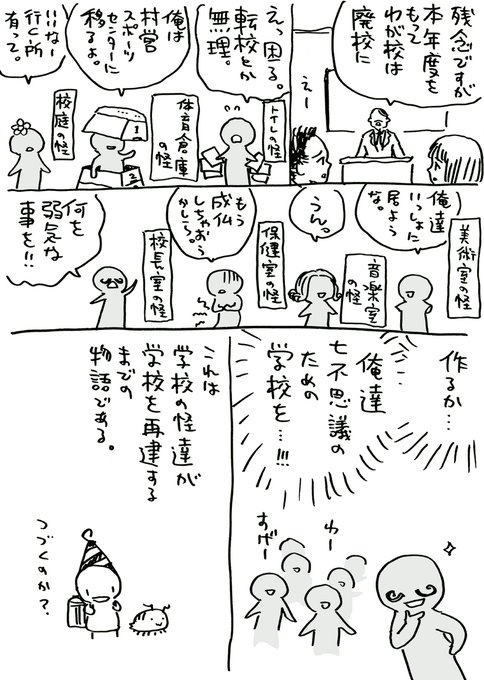 残念ですが
本年度を
もって
わが校は
廃校に
えー
えっ困る。
転校とか
無理。
トイレの怪
俺は
村営
スポーツ
センターに
移るよ。
体育倉庫
の怪
いいなー
行く所
有って。
校庭の怪
美術室の怪
俺達
いっしょに
居よう
な。
音楽室
の怪
うん。
保健室の怪
もう
成仏
しちゃおう
かしら。
校長室の怪
何を
弱気な
事を!!
作るか…
俺達
七不思議の
ための
学校を…!!!
わー
すげー
これは
学校の怪達が
学校を再建する
までの
物語である。
つづくのか?